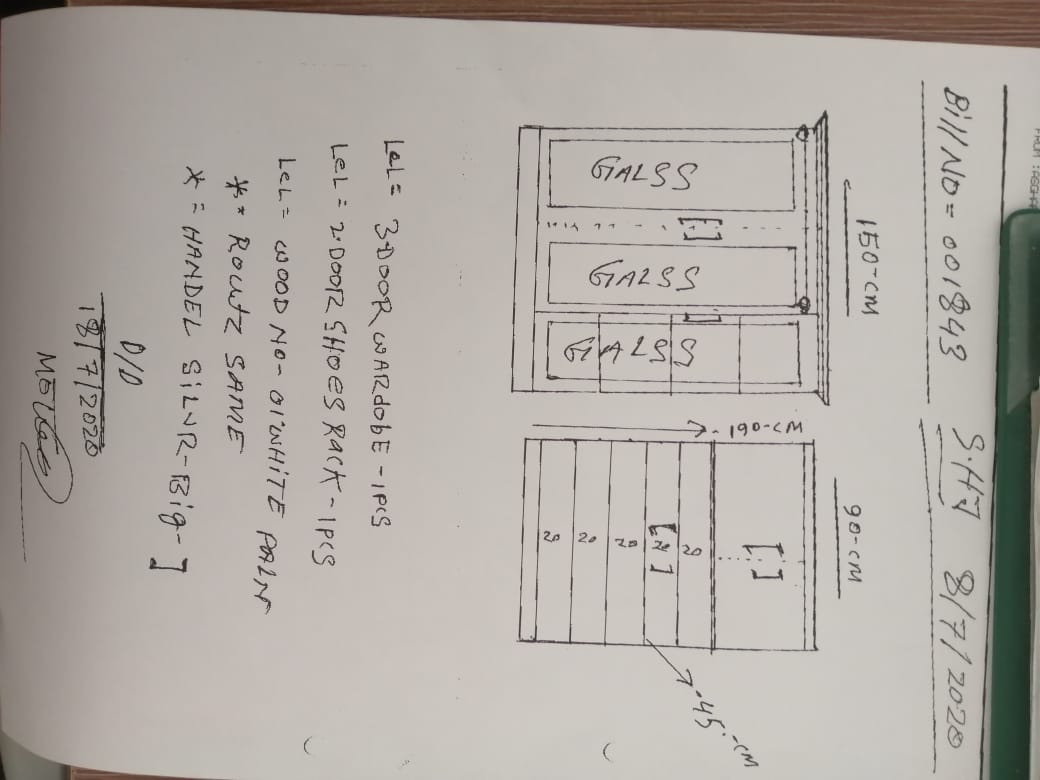 FROM : ASGHAR
Bill NO = 001843 S.HJ 8/7/2020
150-CM
90-CM
190-CM
45.-CM
GALSS
GALSS
GALSS
20
20
20
20
20
LeL = 3.DOOR WARdobE - 1PCS
LeL = 2.DOOR SHOES RACK - 1PCS
LeL = WOOD NO - 01"WHITE PALN
** ROUTZ SAME
* = HANDEL SILVR - Big - ]
D/D
18/7/2020